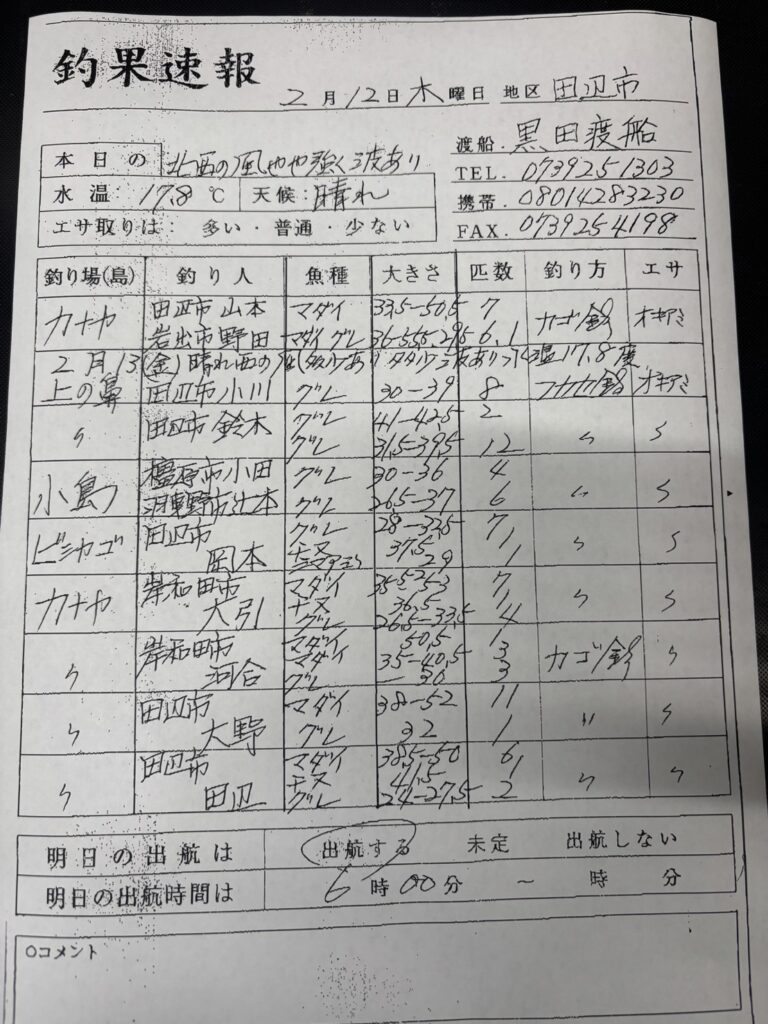 釣果速報
2月12日木曜日 地区 田辺市
渡船. 黒田渡船
本日の 北西の風やや強く波あり
TEL. 0739251303
水温 17.8℃ 天候:晴れ
携帯. 08014283230
エサ取りは: 多い・普通・少ない
FAX. 0739254198
釣り場(島) 釣り人 魚種 大きさ 匹数 釣り方 エサ
カナヤ 田辺市 山本 マダイ 33.5-50.5 7 カゴ釣 オキアミ
岩出市 野田 マダイ グレ 36-55.5 29.5 6.1
2月13(金) 晴れ 西の風 多少あり 波あり 水温17.8度
上の鼻 田辺市 小川 グレ 30-39 8 フカセ釣 オキアミ
〃 田辺市 鈴木 グレ 41-42.5 2 〃 〃
グレ 31.5-39.5 12
小島 橿原市 小田 グレ 30-36 4 〃 〃
羽曳野市 辻本 グレ 26.5-37 6
ビシャゴ 田辺市 グレ 28-32.5 7 〃 〃
岡本 37.5 1
29 1
カナヤ 岸和田市 マダイ 7 〃 〃
大引 チヌ 36.5 1
グレ 26.5-33.5 4
〃 岸和田市 マダイ 50.5 1 カゴ釣 〃
河合 マダイ 35-40.5 3
グレ -30 3
〃 田辺市 マダイ 38-52 11 〃 〃
大野 グレ 32 1
〃 田辺市 マダイ 38.5-50 6 〃 〃
田辺 チヌ 41.5 1
グレ 24-27.5 2
明日の出航は 出航する 未定 出航しない
明日の出航時間は 6時00分 ～ 時 分
○コメント